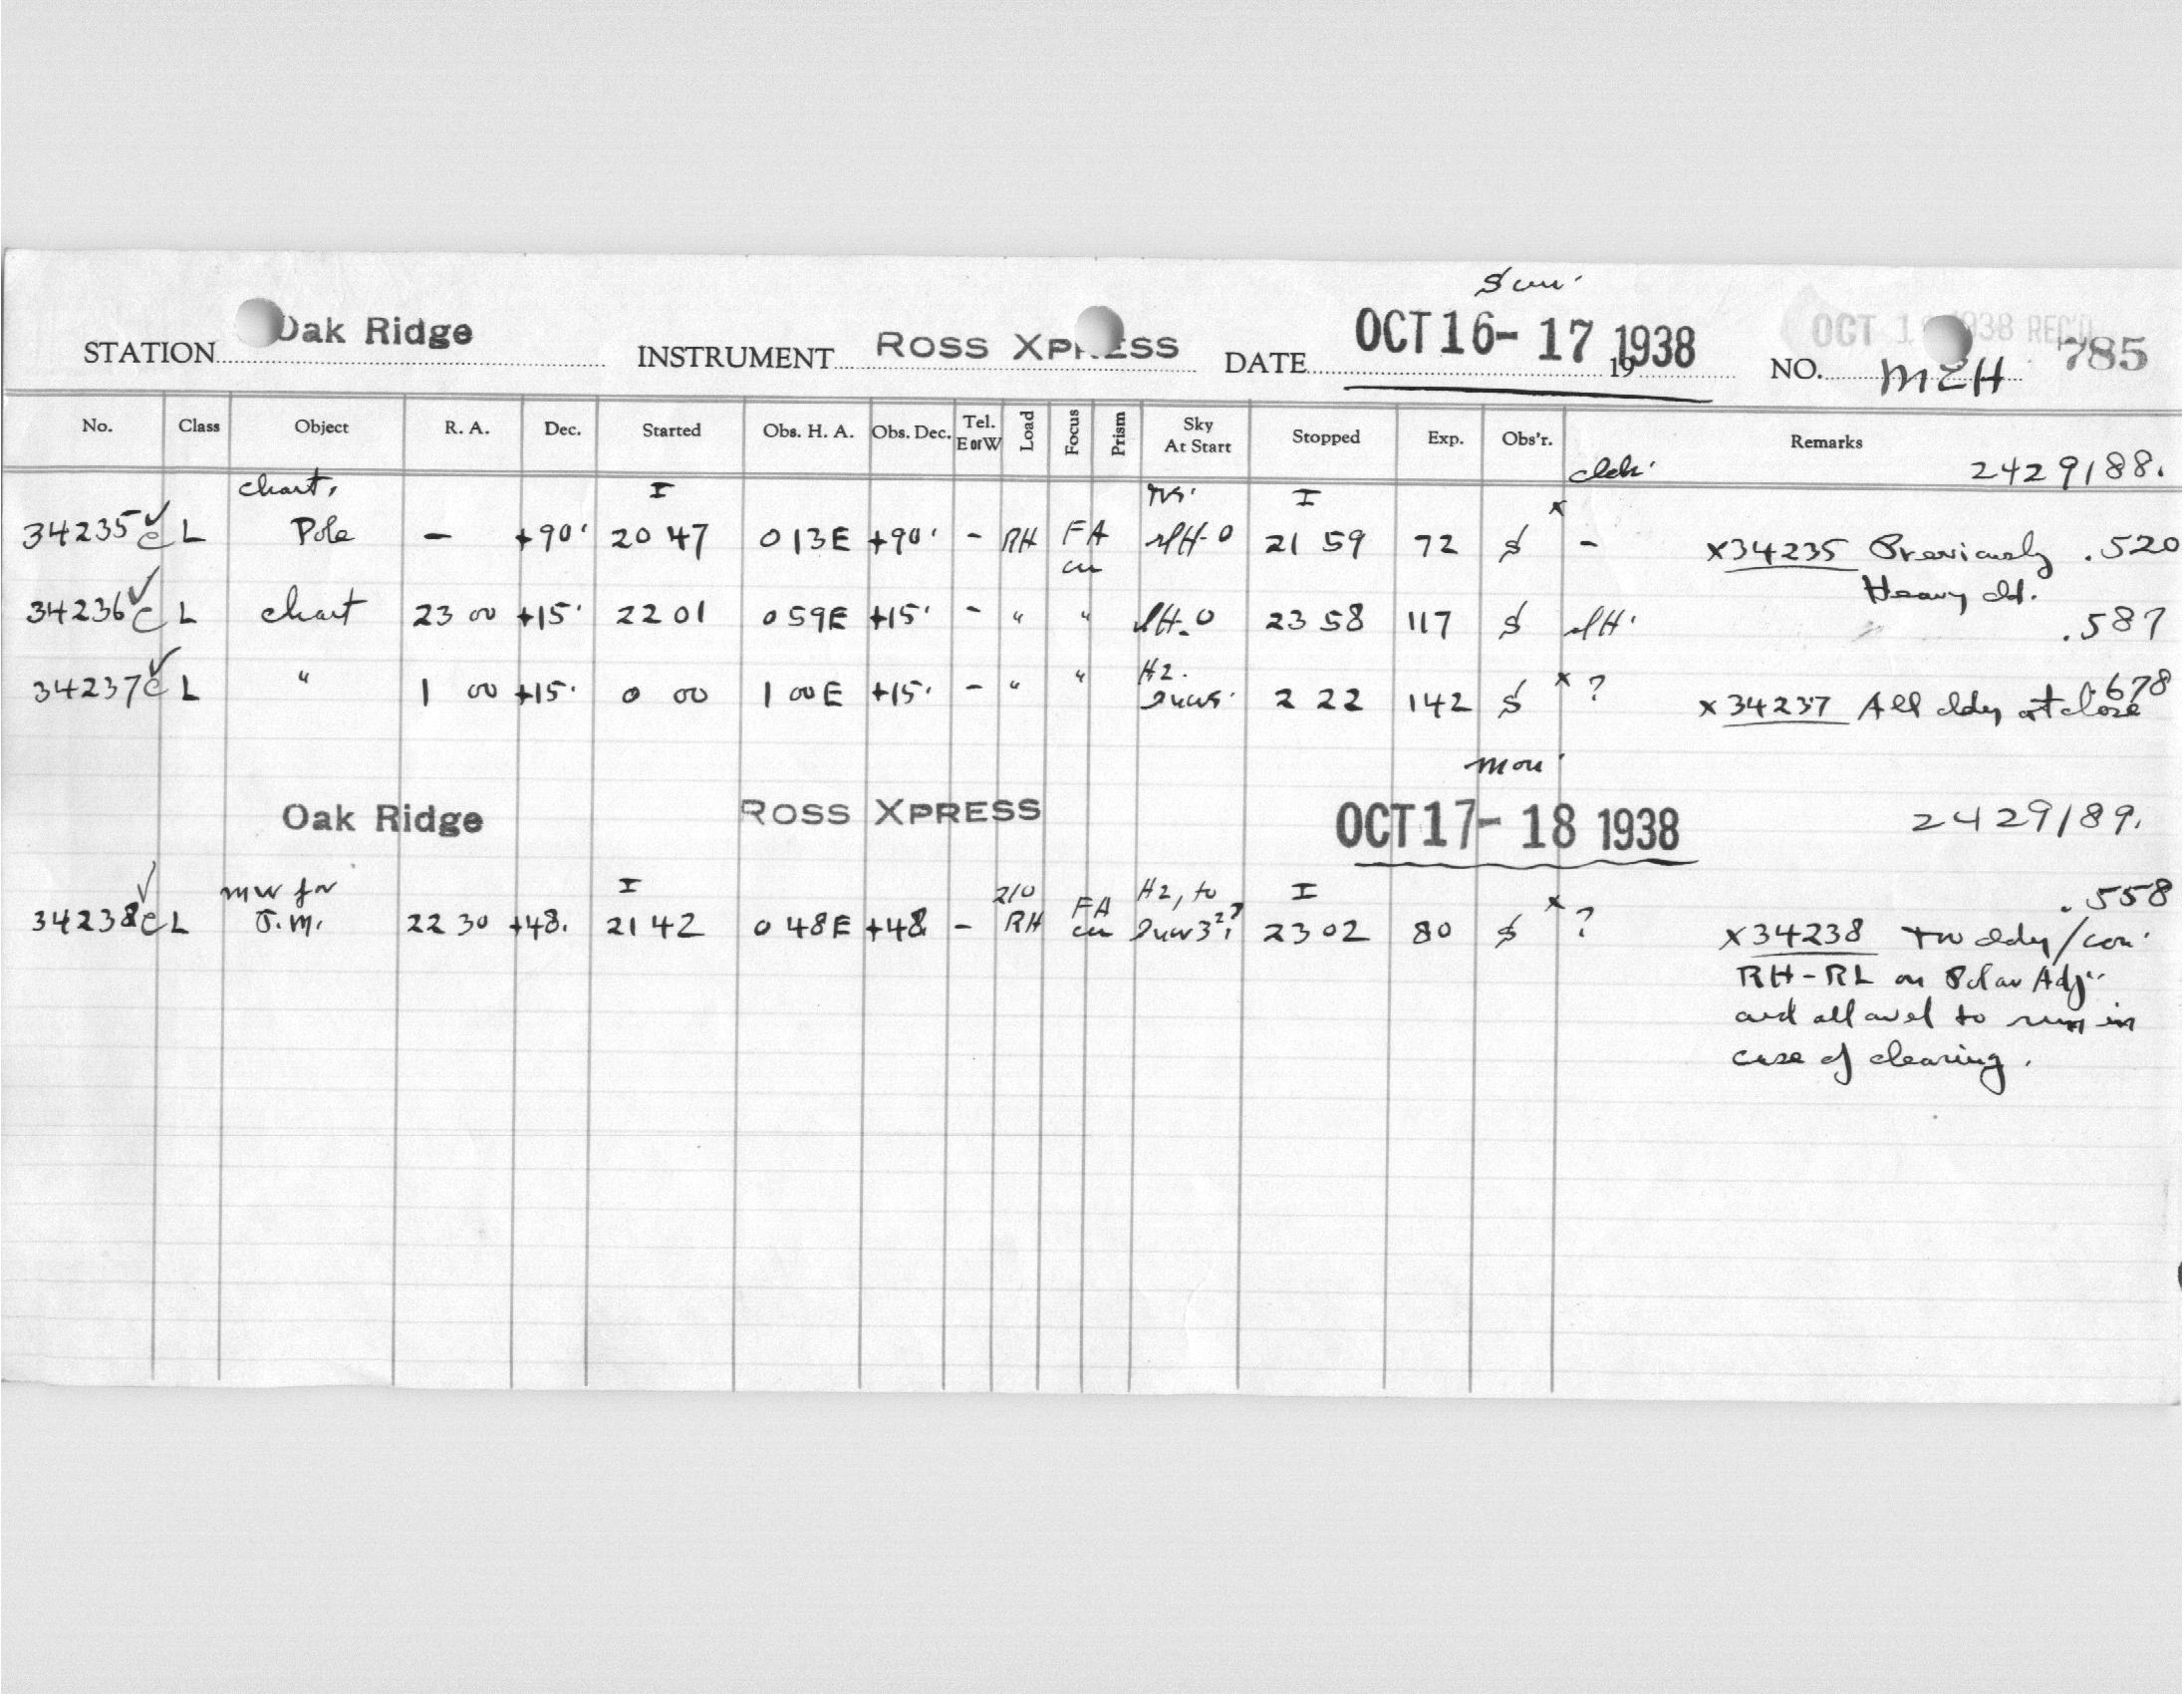 Sun.
STATION Oak Ridge INSTRUMENT ROSS XPRESS DATE OCT 16-17 1938 19 NO. MEH 785
OCT 1 1938 REC'D
No. Class Object R. A. Dec. Started Obs. H. A. Obs. Dec. Tel. E or W Load Focus Prism Sky At Start Stopped Exp. Obs'r. Remarks
2429188.
chart. I I
34235 c L Pole - +90° 20 47 0 13E +90° - RH FA 21 59 72 S x - x34235 Previously .520
Heavy cld.
34236 c L chart 23 00 +15° 22 01 0 59E +15° - " " 23 58 117 S .587
H2.
34237 c L " 1 00 +15° 0 00 1 00E +15° - " " 2 22 142 S x ? x 34237 All cldy at close .678
Mon.
Oak Ridge ROSS XPRESS OCT 17-18 1938 2429189.
MW for I 210 H2, to I .558
34238 c L J.M. 22 30 +48. 21 42 0 48E +48 - RH FA 23 02 80 S x ? x34238 cldy/con.
RH-RL on Polar Adj.
and allowed to run in
case of clearing.